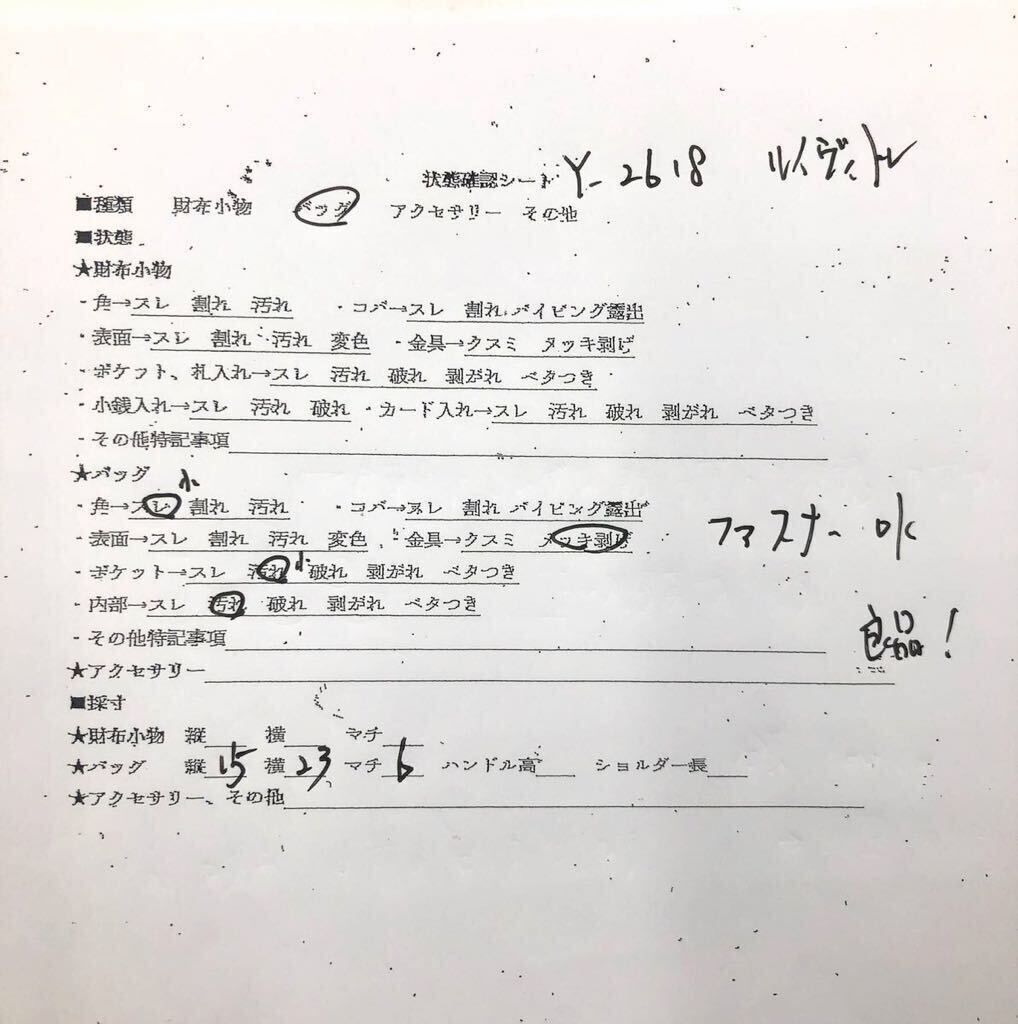 状態確認シート Y-2618 ルイヴィトン
■種類 財布小物 バッグ アクセサリー その他
■状態
★財布小物
・角→スレ 割れ 汚れ ・コバ→スレ 割れ パイピング露出
・表面→スレ 割れ 汚れ 変色 ・金具→クスミ メッキ剥げ
・ポケット、札入れ→スレ 汚れ 破れ 剥がれ ベタつき
・小銭入れ→スレ 汚れ 破れ ・カード入れ→スレ 汚れ 破れ 剥がれ ベタつき
・その他特記事項
★バッグ 小
・角→スレ 割れ 汚れ ・コバ→スレ 割れ パイピング露出
・表面→スレ 割れ 汚れ 変色 ・金具→クスミ メッキ剥げ ファスナー OK
・ポケット→スレ 汚れ 小 破れ 剥がれ ベタつき
・内部→スレ 汚れ 破れ 剥がれ ベタつき
・その他特記事項 良品!
★アクセサリー
■採寸
★財布小物 縦 横 マチ
★バッグ 縦 15 横 23 マチ 6 ハンドル高 ショルダー長
★アクセサリー、その他